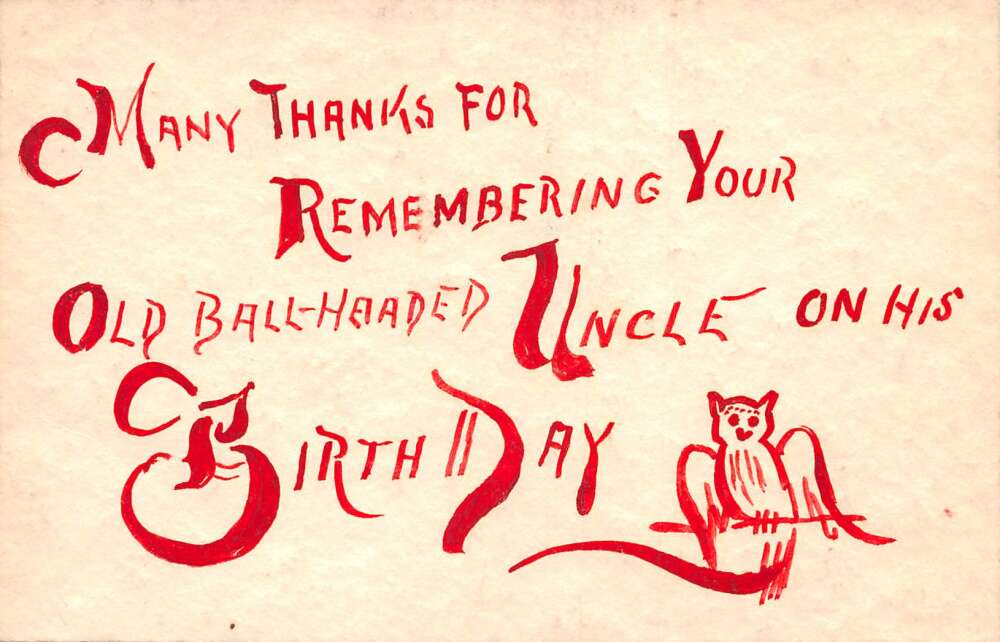 MANY THANKS FOR
REMEMBERING YOUR
OLD BALL-HEADED UNCLE ON HIS
BIRTH DAY